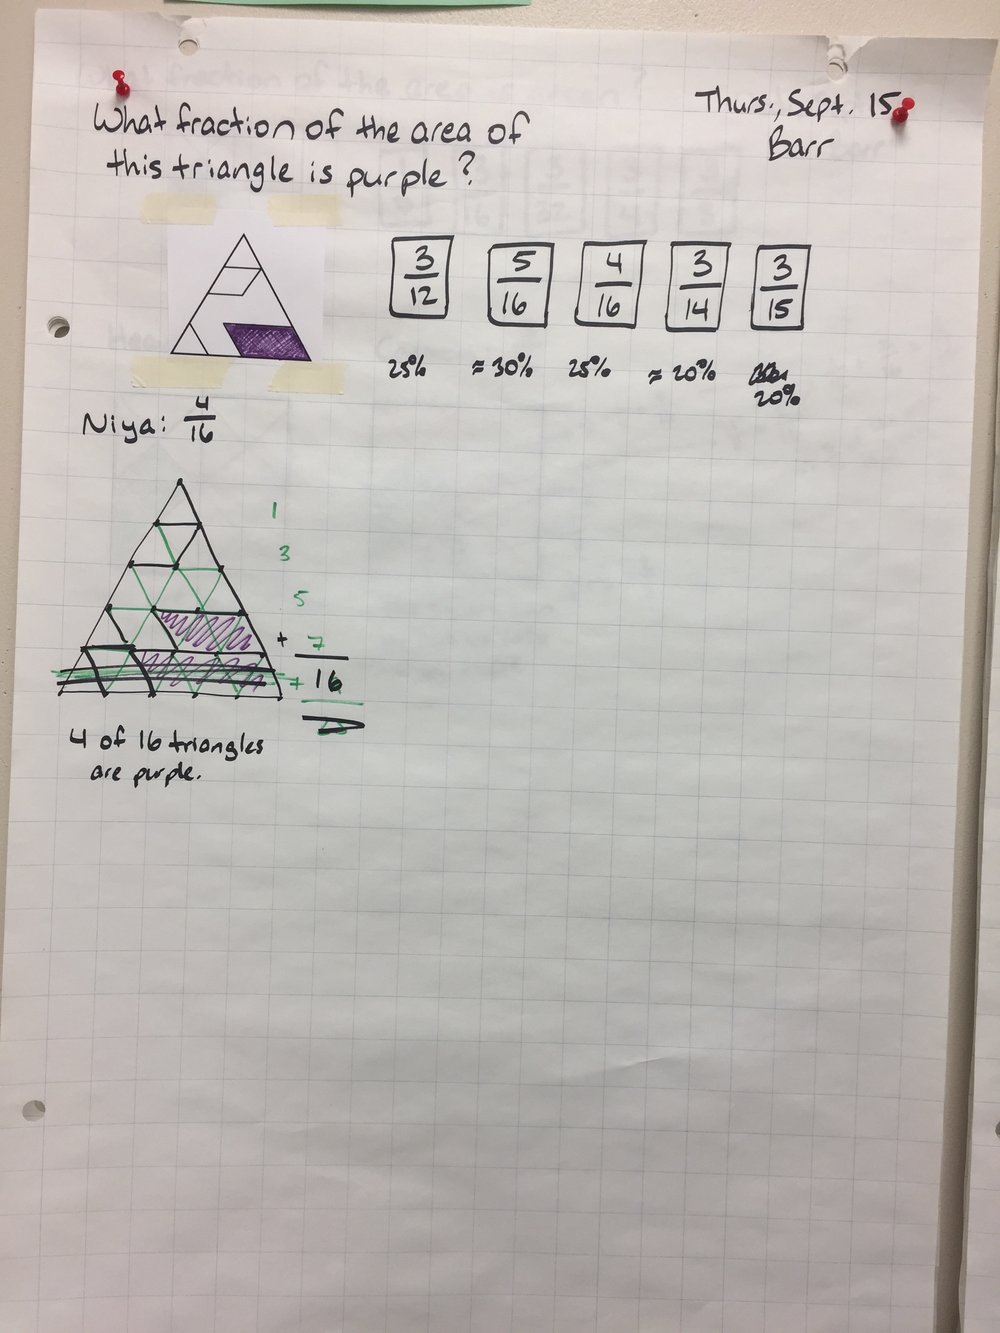 What fraction of the area of
this triangle is purple?
Thurs., Sept. 15
Barr
3/12 5/16 4/16 3/14 3/15
25% ≈ 30% 25% ≈ 20% 20%
Niya: 4/16
1
3
5
+ 7
+ 16
4 of 16 triangles
are purple.